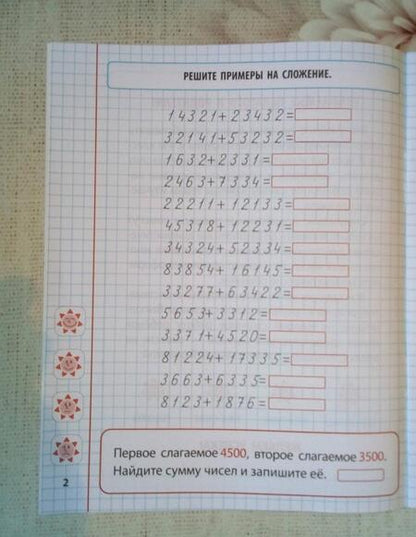 РЕШИТЕ ПРИМЕРЫ НА СЛОЖЕНИЕ.
14321+23432=
32141+53232=
1632+2331=
2463+7334=
22211+12133=
45318+12231=
34324+52334=
83854+16145=
33277+63422=
5653+3312=
3371+4520=
81224+17335=
3663+6335=
8123+1876=
Первое слагаемое 4500, второе слагаемое 3500.
Найдите сумму чисел и запишите её.
2